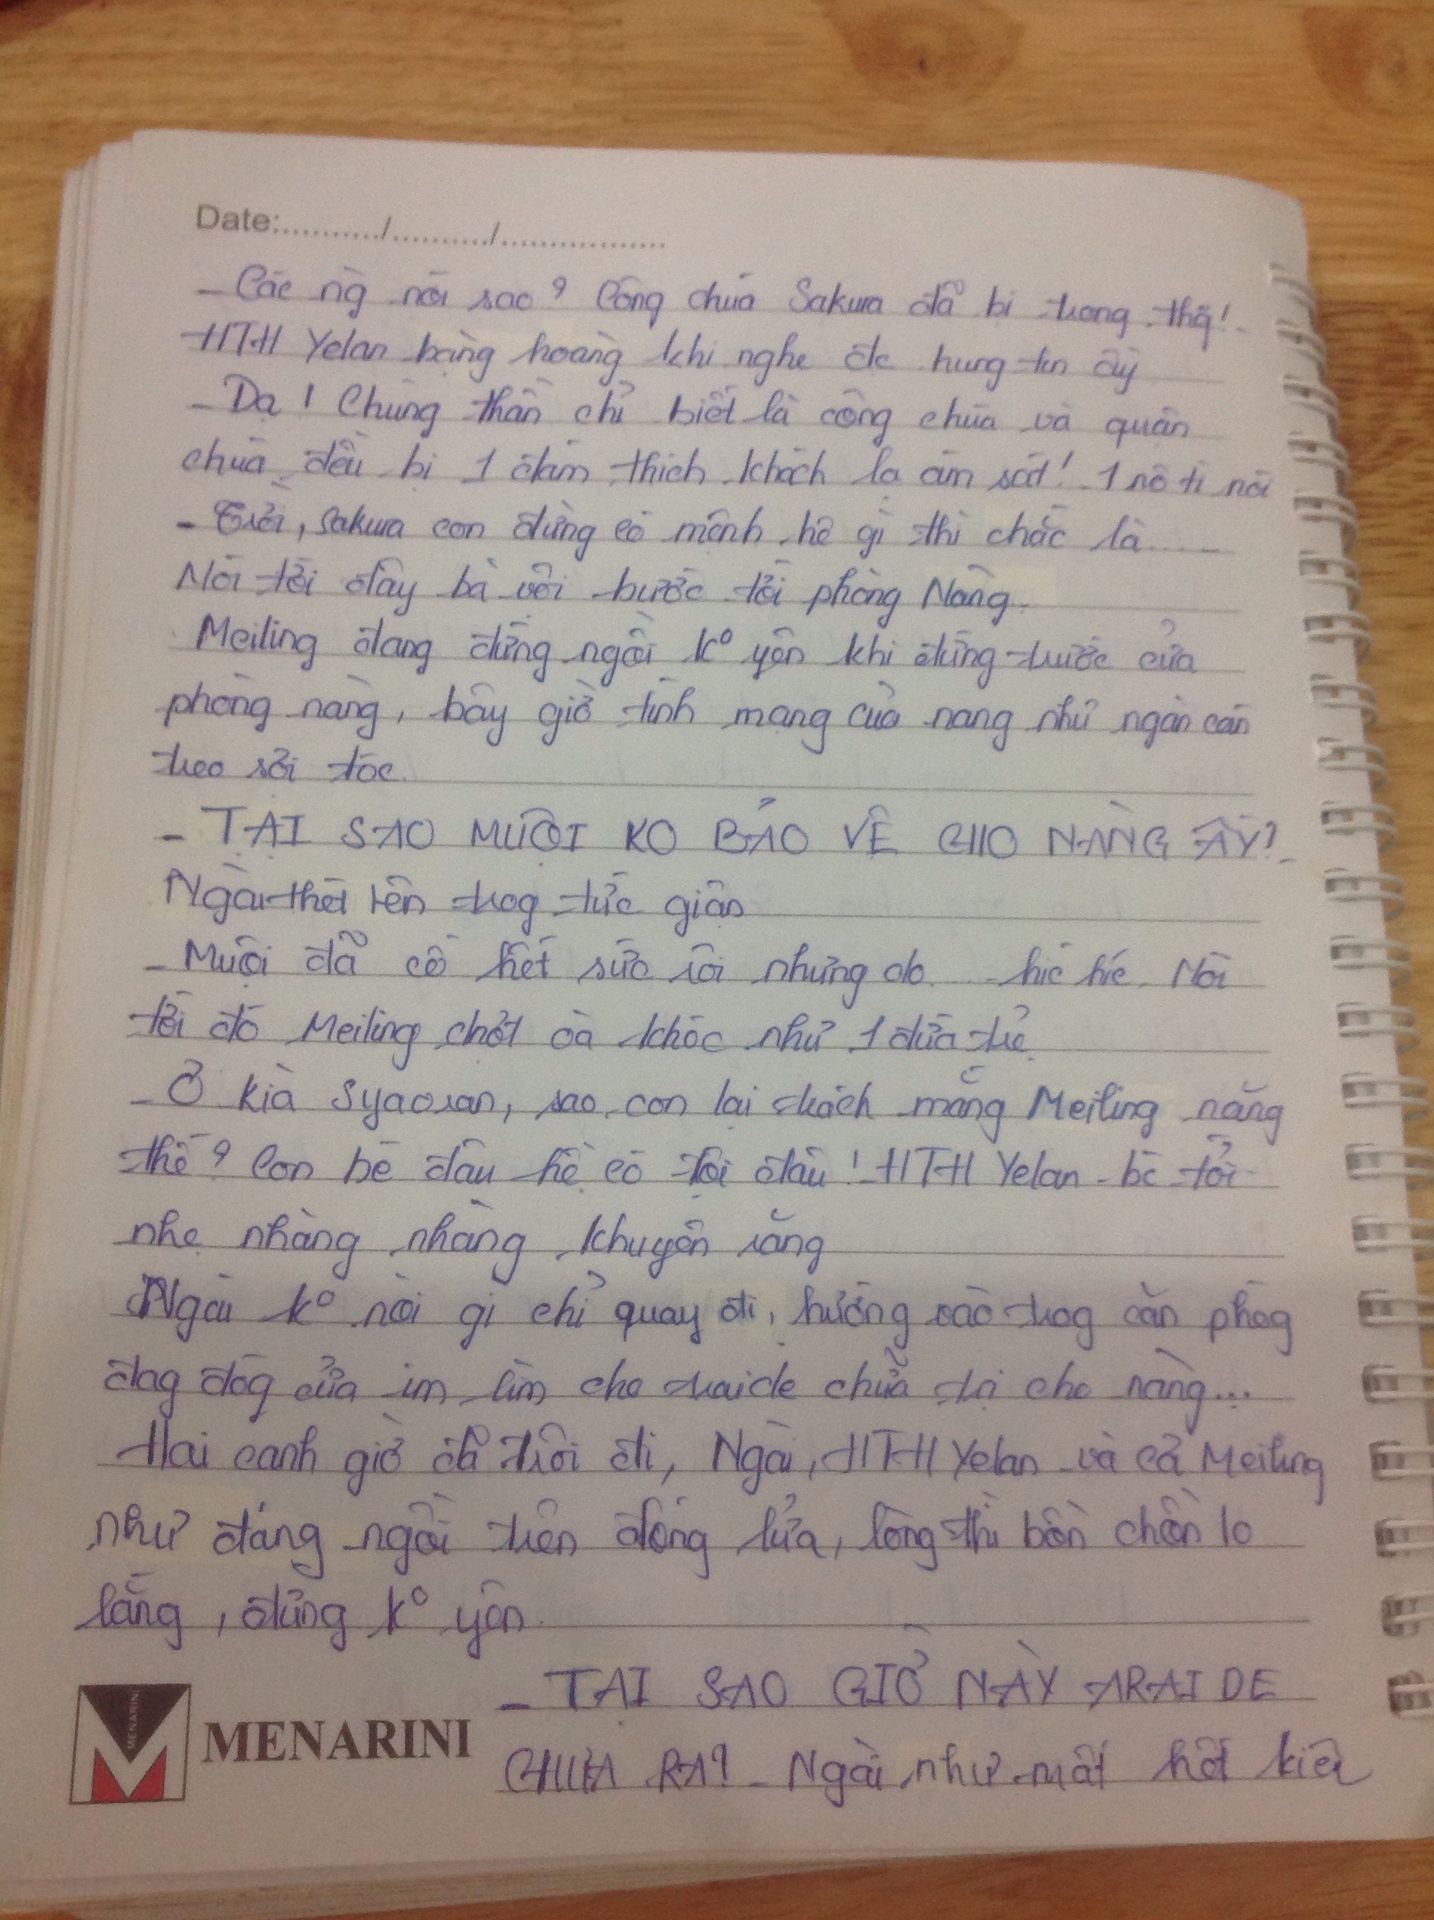 Date:.........../........../.................
- Các ng nói sao? Công chúa Sakura đã bị trọng thg!
HTH Yelan bàng hoàng khi nghe đc hung tin ấy
- Dạ! Chúng thần chỉ biết là công chúa và quân
chúa đều bị 1 đám thích khách lạ ám sát! 1 nô tì nói
- Trời, Sakura con đừng có mệnh hệ gì thì chắc là.....
Nói tới đây bà vội bước tới phòng Nàng.
Meiling đang đứng ngồi kº yên khi đứng trước cửa
phòng nàng, bây giờ tính mạng của nàng như ngàn cân
treo sợi tóc.
- TẠI SAO MUỘI KO BẢO VỆ CHO NÀNG ẤY?
Ngài thét lên trog tức giận
- Muội đã cố hết sức rồi nhưng do.... hic hic. Nói
tới đó Meiling chợt oà khóc như 1 đứa trẻ
- Ơ kìa Syaoran, sao con lại trách mắng Meiling nặng
thế? Con bé đâu hề có tội đâu! HTH Yelan bc tới
nhẹ nhàng nhàng khuyên răng
Ngài kº nói gì chỉ quay đi, hướng vào trog căn phòg
đag đóg cửa im lìm cho chữa trị cho nàng...
Hai canh giờ đã trôi đi, Ngài, HTH Yelan và cả Meiling
như đáng ngồi trên đống lửa, lòng thì bồn chồn lo
lắng, đứng kº yên
- TẠI SAO GIỜ NÀY ARAIDE
CHƯA RA? - Ngài như mất hết kiên
MENARINI
MENARINI